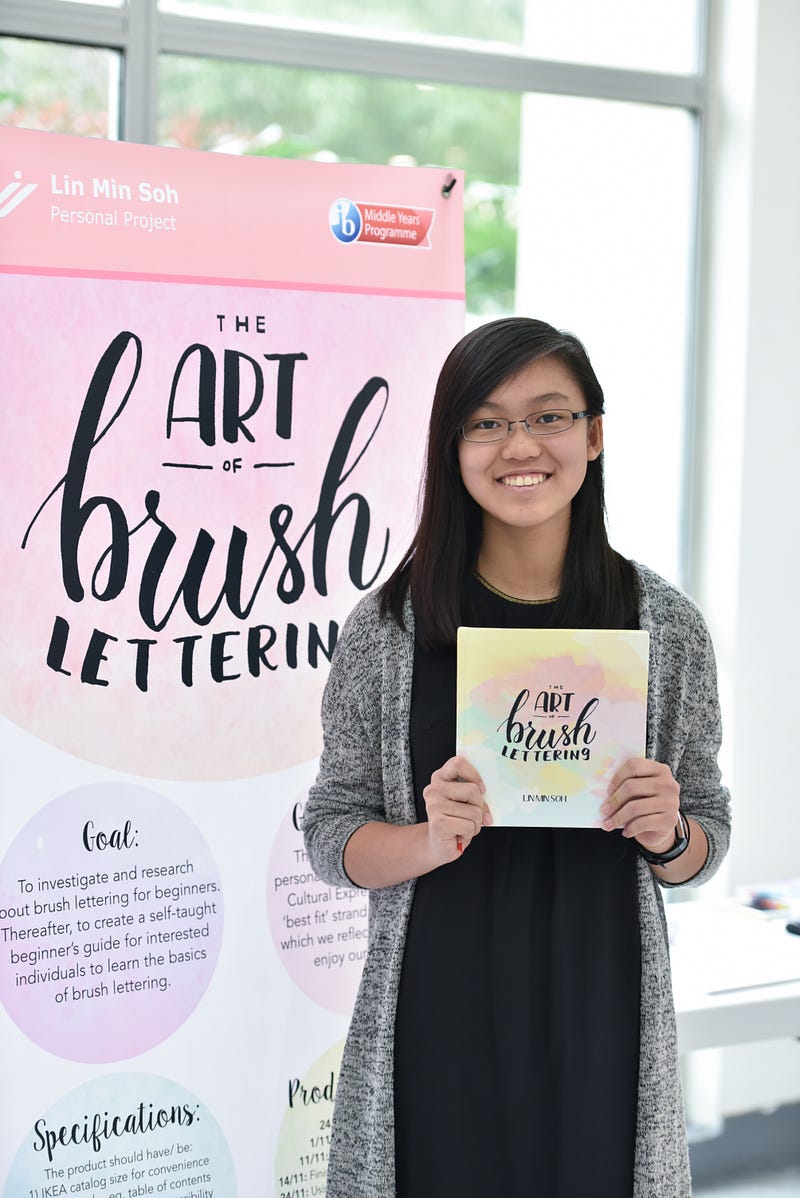 Lin Min Soh
Personal Project
ib
Middle Years
Programme
THE
ART
OF
brush
LETTERIN
Goal:
To investigate and research
bout brush lettering for beginners.
Thereafter, to create a self-taught
beginner's guide for interested
individuals to learn the basics
of brush lettering.
G
Th
persona
Cultural Expre
'best fit' strand
which we reflec
enjoy our
Specifications:
The product should have/ be:
1) IKEA catalog size for convenience
eg. table of contents
Prod
24
1/11
11/11:
14/11: Finis
24/11: Us
THE
ART
OF
brush
LETTERING
LIN MIN SOH